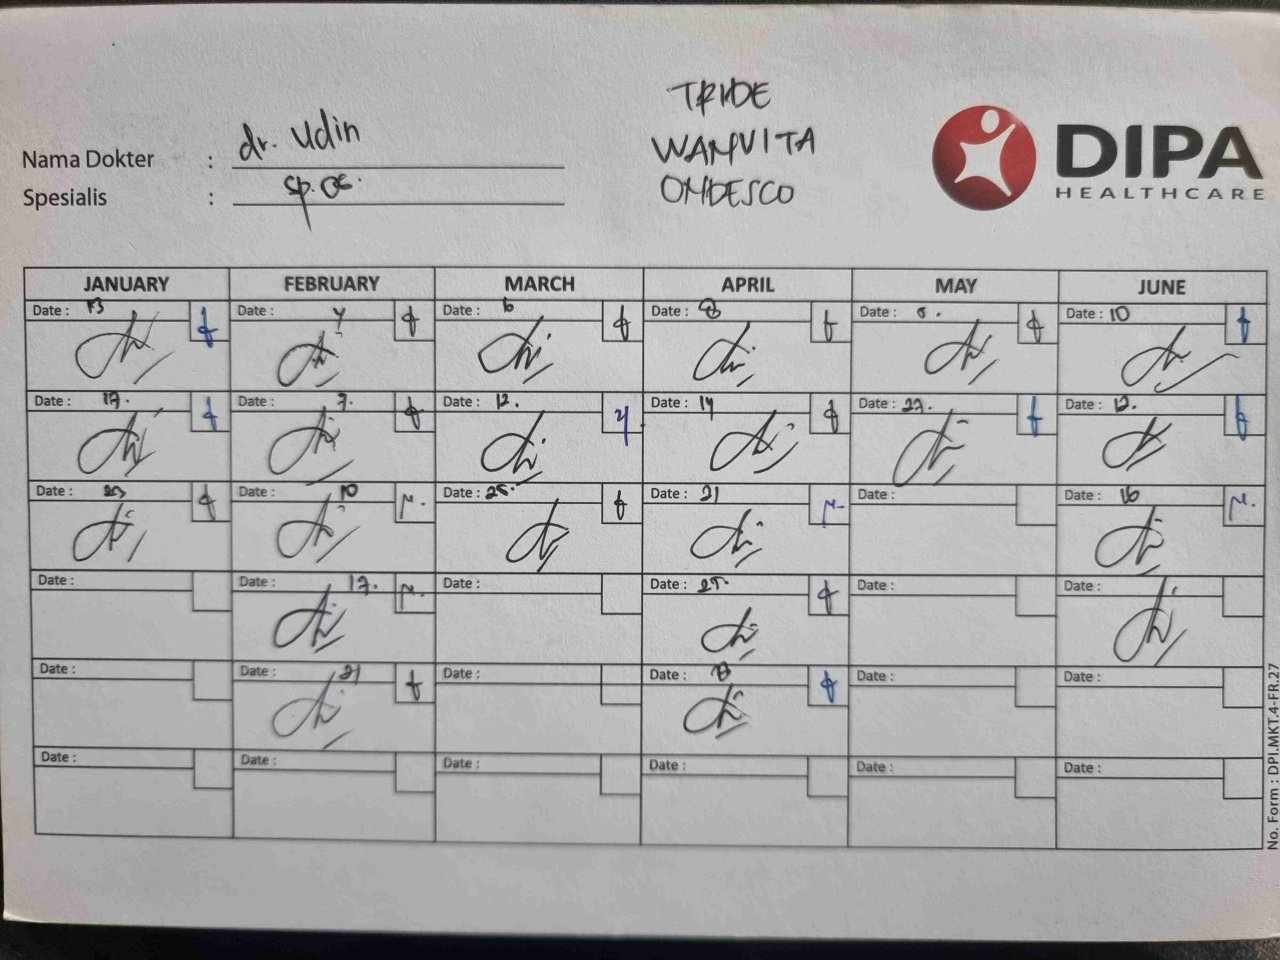 TRIDE
WANVITA
ONDESCO
Nama Dokter : dr. Udin
Spesialis : sp.
DIPA
HEALTHCARE
JANUARY FEBRUARY MARCH APRIL MAY JUNE
Date : 13 Date : 4 Date : 6 Date : 8 Date : Date : 10
Date : 17. Date : 7. Date : 12. Date : 14 Date : 27. Date : 12.
Date : 23 Date : 10 Date : 25. Date : 21 Date : Date : 16
Date : Date : 17. Date : Date : 25. Date : Date :
Date : Date : 21 Date : Date : Date : Date :
Date : Date : Date : Date : Date : Date :
No. Form : DPI.MKT.4-FR.27